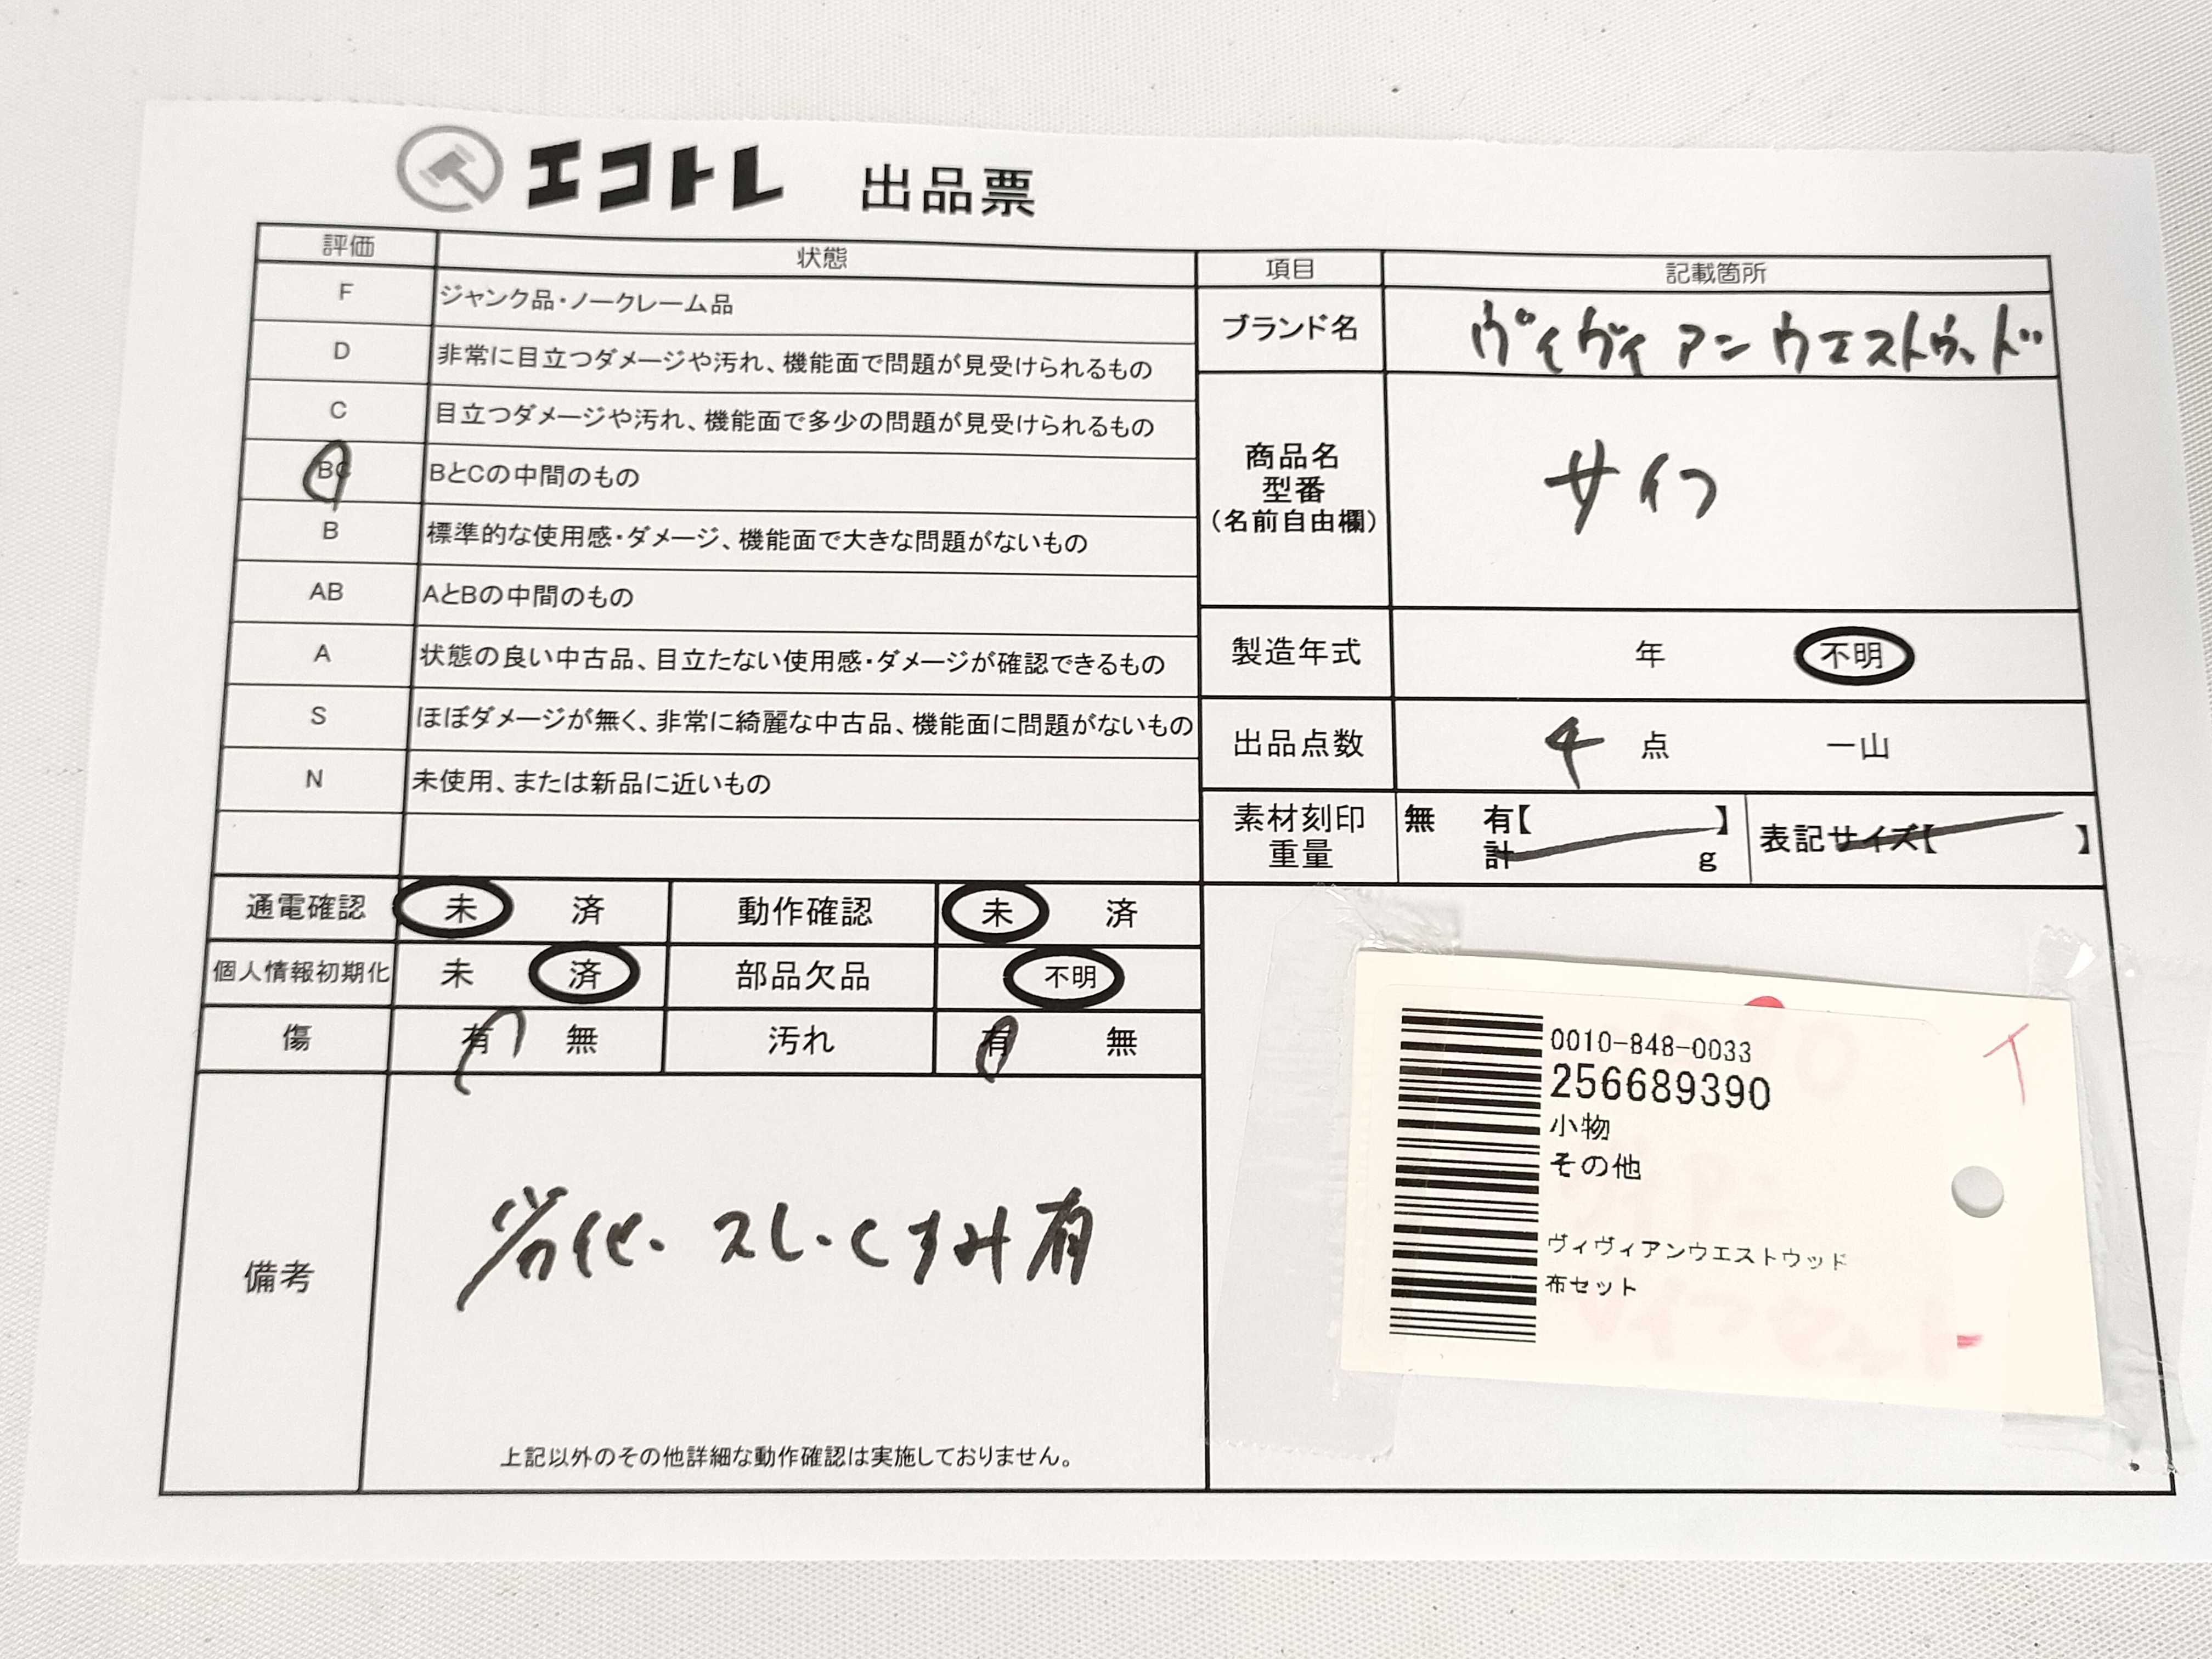 エコトレ 出品票
評価 状態
F ジャンク品・ノークレーム品
D 非常に目立つダメージや汚れ、機能面で問題が見受けられるもの
C 目立つダメージや汚れ、機能面で多少の問題が見受けられるもの
BC BとCの中間のもの
B 標準的な使用感・ダメージ、機能面で大きな問題がないもの
AB AとBの中間のもの
A 状態の良い中古品、目立たない使用感・ダメージが確認できるもの
S ほぼダメージが無く、非常に綺麗な中古品、機能面に問題がないもの
N 未使用、または新品に近いもの
項目 記載箇所
ブランド名 ヴィヴィアンウエストウッド
商品名
型番
(名前自由欄)
サイフ
製造年式 年 不明
出品点数 4 点 一山
素材刻印 無 有【 】
重量 計 g
表記サイズ【 】
通電確認 未 済 動作確認 未 済
個人情報初期化 未 済 部品欠品 不明
傷 有 無 汚れ 有 無
備考 劣化・スレ・くすみ有
上記以外のその他詳細な動作確認は実施しておりません。
0010-848-0033
256689390
小物
その他
ヴィヴィアンウエストウッド
布セット